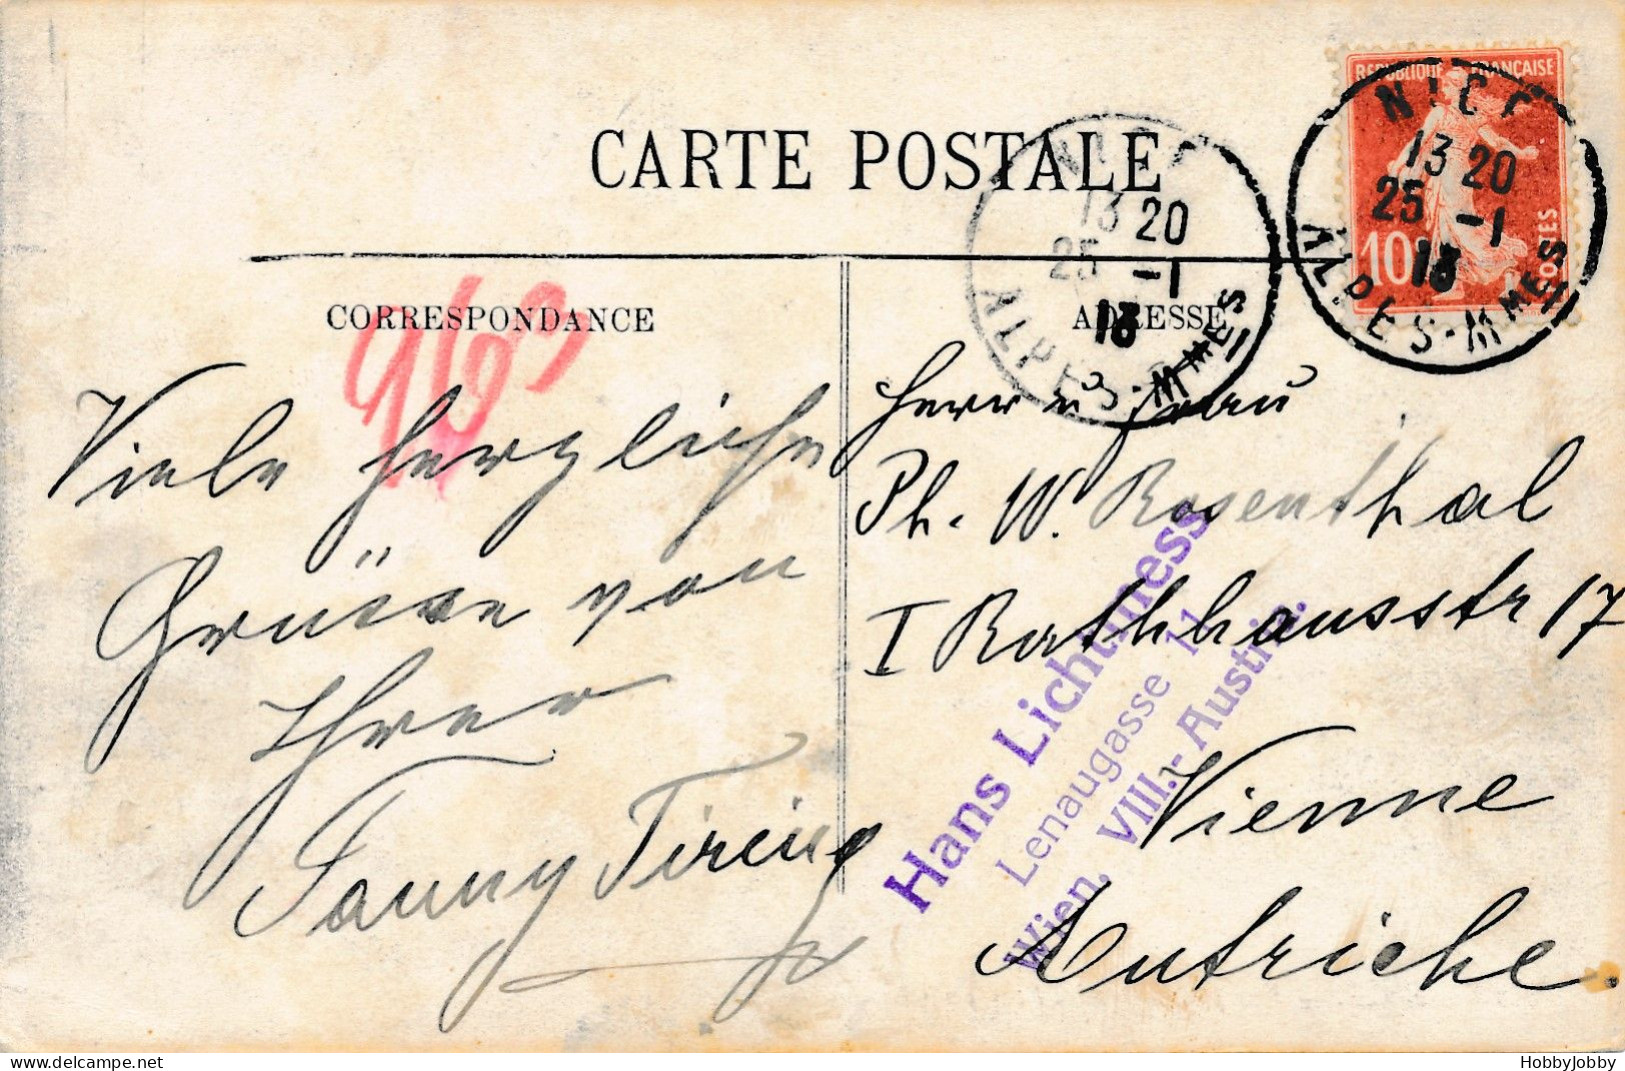 CARTE POSTALE
REPUBLIQUE FRANÇAISE
10
POSTES
NICE
13 20
25 -1
13
ALPES-MMES
NICE
13 20
25 -1
13
ALPES-MMES
CORRESPONDANCE
963
Viele herzliche
Grüsse von
Ihrer
Fanny
ADRESSE
Herr u Frau
Ph. W. Rosenthal
I Rathhausstr 17
Vienne
Autriche.
Hans Lichtmess
Lenaugasse 11
Wien, VIII.- Austria.
HobbyJobby